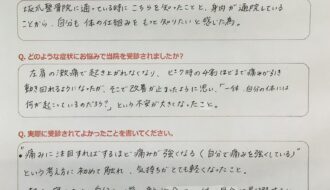 坂爪整骨院に通っている時にこちらを知ったことと、身内が通院している
ことから、自分も体の仕組みをもっと知りたいと感じた為。
Q. どのような症状にお悩みで当院を受診されましたか?
左肩の激痛で起き上がれなくなり、ピーク時の4割ほどまで痛みが引き
動き回れるようになったが、そこで改善が止まったように思い、「一体、自分の体には
何が起こっているのだろう?」という不安が大きくなったこと。
Q. 実際に受診されてよかったことを書いてください。
"痛みに注目すればするほど痛みが強くなる(自分で痛みを強くしている)"
という考え方に初めて触れ、気持ちがとても軽くなったこと。